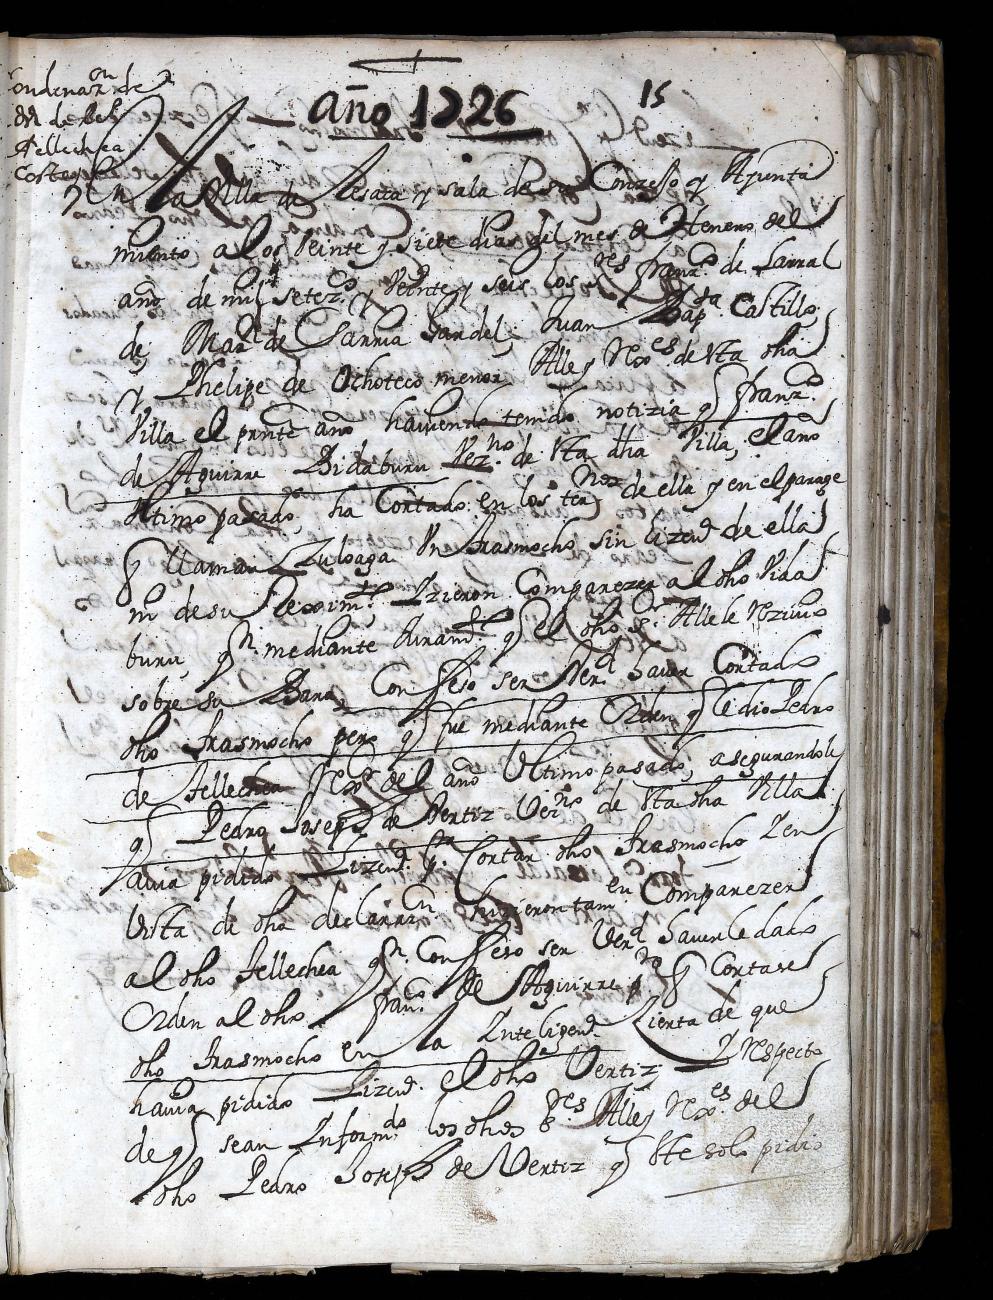 año 1726
15
ondenaz.on de
Tellechea
Costas
En la Villa de Lesaca y sala de su Conzejo y Ayunta
miento a los Veinte y siete dias del mes de Henero del
año de mil setez.os Veinte y seis los s.res Fran.co de Larral
de, Mar.n de Sarria Sandel, Juan Bap.ta Castillo,
y Phelipe de Ochoteco menor Alle y Rex.es de Vta dha
Villa el prnte año haviendo tenido notizia q Franz.co
de Aguirre Bidaburu Vez.no de Vta dha Villa, el año
Vltimo pasado, ha Cortado en los ter.nos de ella y en el parage
q llaman Zuloaga Vn trasmocho sin lizend.a de ella
ni de su Reximi.to Izieron Comparezer al dho Vida
buru, q.n mediante Juram.to q el dho s.r Alle le Rezivio
sobre su Bara, Confeso ser Ver.d haver Cortado
dho trasmocho pero q fue mediante Orden q le dio Pedro
de Tellechea Rex.or del año Vltimo pasado, asegurandole
q Pedro Joseph de Vertiz Vez.no de Vta dha Villa
avia pidido Lizend.a p.a Cortar dho trasmocho Y en
Vista de dha declaraz.on hizieron tam.en Comparezer
al dho Tellechea q.n Confeso ser Verd.d haverle dado
Orden al dho Fran.co de Aguirre p.a q Cortase
dho trasmocho en la Inteligend.a Zierta de que
havia pidido Lizend.a el dho Vertiz Y Respecto
de q sean Inform.do los dhos s.res Alle y Rex.es del
dho Pedro Joseph de Vertiz q Vte solo pidio